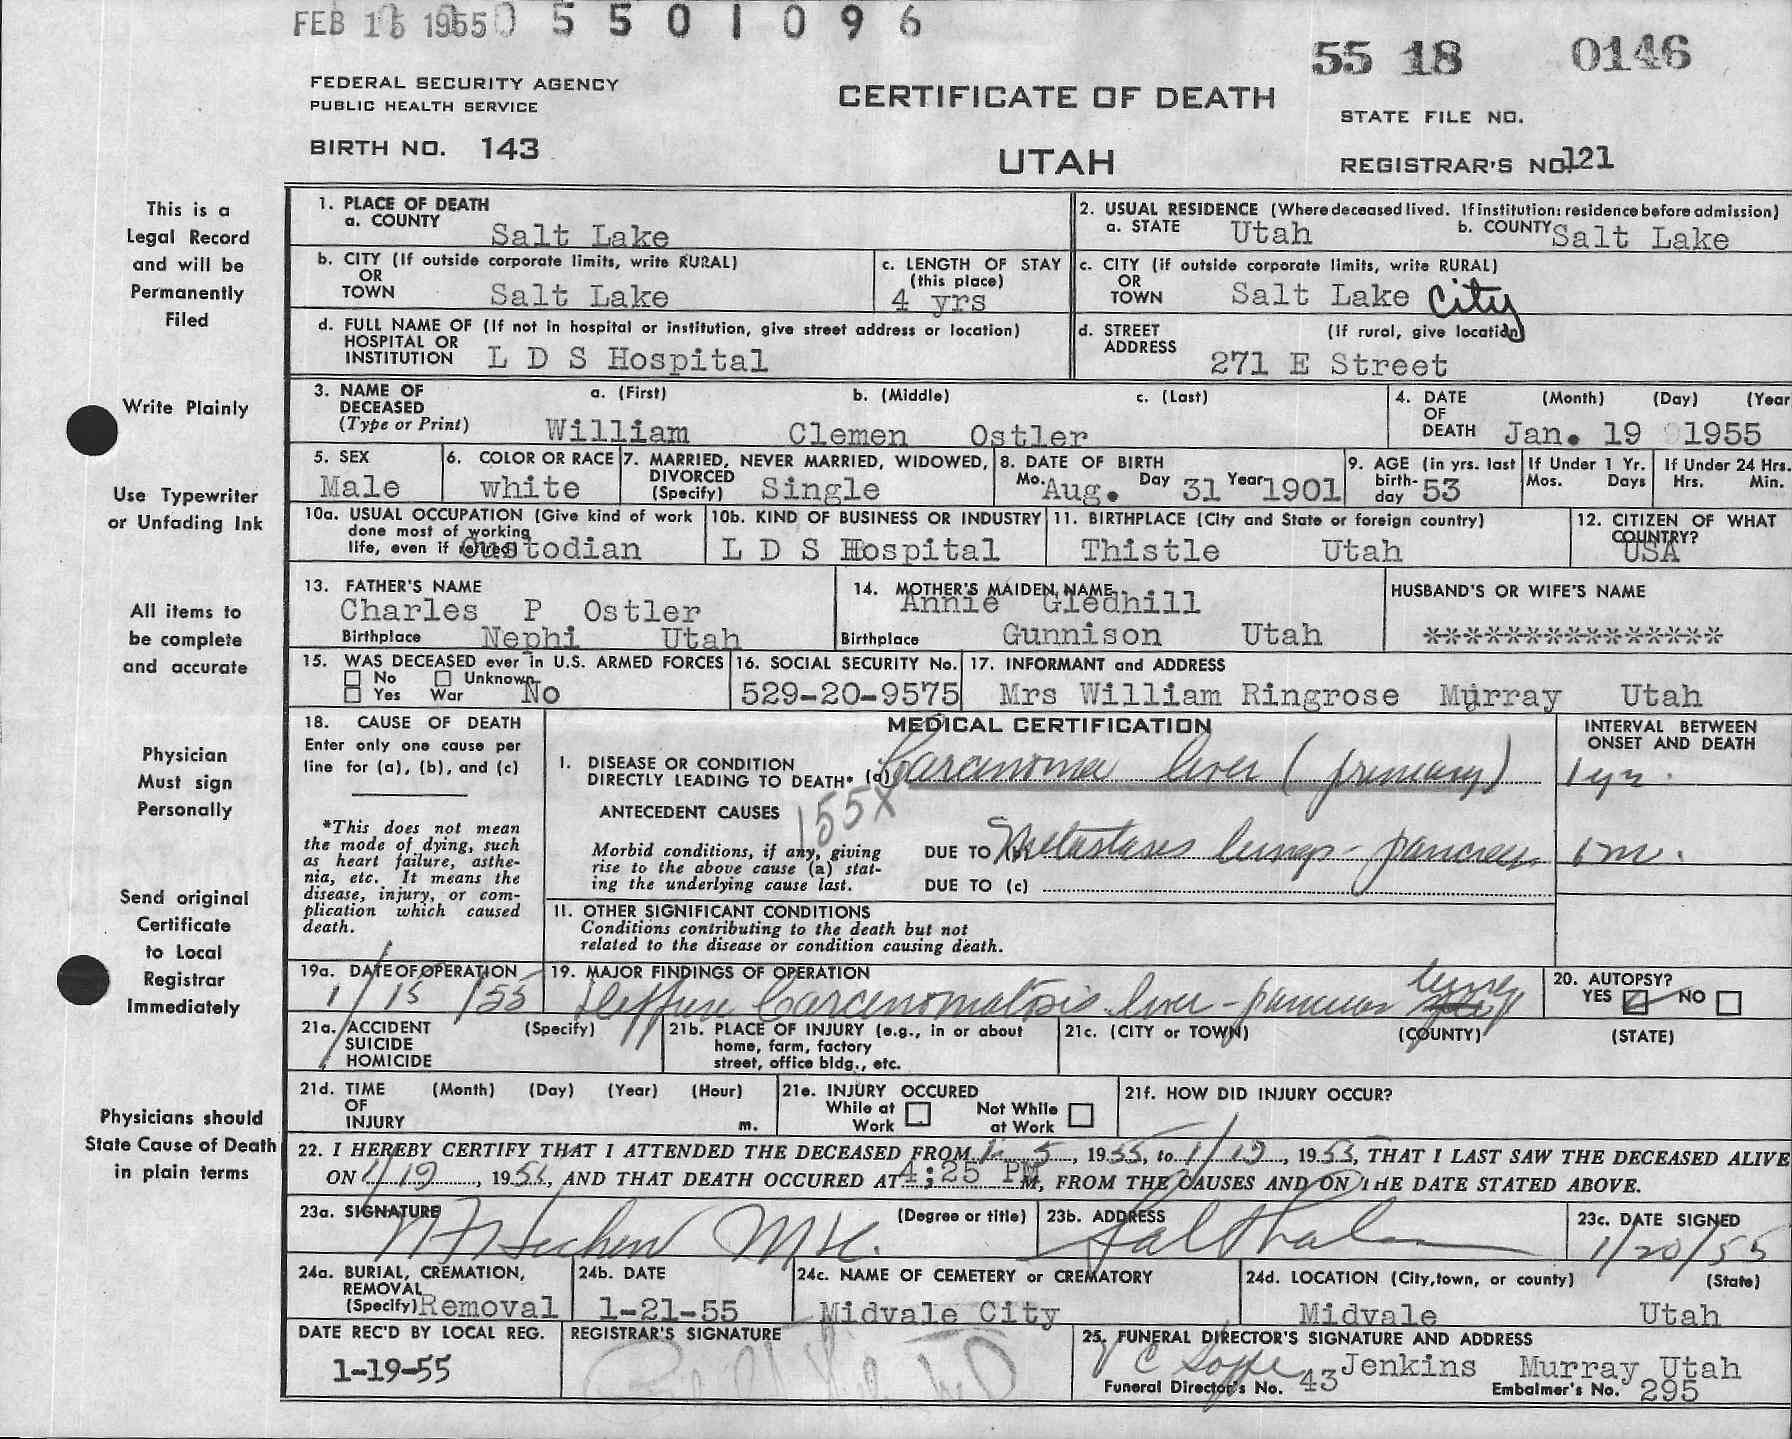 FEB 16 1955 0 5 5 0 1 0 9 6
55 18 0146
FEDERAL SECURITY AGENCY
PUBLIC HEALTH SERVICE
CERTIFICATE OF DEATH
STATE FILE NO.
BIRTH NO. 143
UTAH
REGISTRAR'S NO. 121
This is a
Legal Record
and will be
Permanently
Filed
Write Plainly
Use Typewriter
or Unfading Ink
All items to
be complete
and accurate
Physician
Must sign
Personally
Send original
Certificate
to Local
Registrar
Immediately
Physicians should
State Cause of Death
in plain terms
1. PLACE OF DEATH
a. COUNTY Salt Lake
2. USUAL RESIDENCE (Where deceased lived. If institution: residence before admission)
a. STATE Utah b. COUNTY Salt Lake
b. CITY (If outside corporate limits, write RURAL)
OR
TOWN Salt Lake
c. LENGTH OF STAY
(this place)
4 yrs
c. CITY (if outside corporate limits, write RURAL)
OR
TOWN Salt Lake City
d. FULL NAME OF (If not in hospital or institution, give street address or location)
HOSPITAL OR
INSTITUTION L D S Hospital
d. STREET (If rural, give location)
ADDRESS 271 E Street
3. NAME OF DECEASED
(Type or Print)
a. (First) b. (Middle) c. (Last)
William Clemen Ostler
4. DATE OF DEATH (Month) (Day) (Year
Jan. 19 1955
5. SEX
Male
6. COLOR OR RACE
white
7. MARRIED, NEVER MARRIED, WIDOWED,
DIVORCED
(Specify) Single
8. DATE OF BIRTH
Mo. Aug. Day 31 Year 1901
9. AGE (in yrs. last
birth-
day 53
If Under 1 Yr.
Mos. Days
If Under 24 Hrs.
Hrs. Min.
10a. USUAL OCCUPATION (Give kind of work
done most of working
life, even if retired) Custodian
10b. KIND OF BUSINESS OR INDUSTRY
L D S Hospital
11. BIRTHPLACE (City and State or foreign country)
Thistle Utah
12. CITIZEN OF WHAT
COUNTRY?
USA
13. FATHER'S NAME
Charles P Ostler
Birthplace Nephi Utah
14. MOTHER'S MAIDEN NAME
Annie Gledhill
Birthplace Gunnison Utah
HUSBAND'S OR WIFE'S NAME
***************
15. WAS DECEASED ever in U.S. ARMED FORCES
No Unknown
Yes War No
16. SOCIAL SECURITY No.
529-20-9575
17. INFORMANT and ADDRESS
Mrs William Ringrose Murray Utah
18. CAUSE OF DEATH
Enter only one cause per
line for (a), (b), and (c)
*This does not mean
the mode of dying, such
as heart failure, asthe-
nia, etc. It means the
disease, injury, or com-
plication which caused
death.
MEDICAL CERTIFICATION
INTERVAL BETWEEN
ONSET AND DEATH
I. DISEASE OR CONDITION
DIRECTLY LEADING TO DEATH* (a) Carcinoma liver (primary) 1 yr.
ANTECEDENT CAUSES
155X
Morbid conditions, if any, giving
rise to the above cause (a) stat-
ing the underlying cause last.
DUE TO (b) Metastases lungs - pancreas 1 m.
DUE TO (c)
II. OTHER SIGNIFICANT CONDITIONS
Conditions contributing to the death but not
related to the disease or condition causing death.
19a. DATE OF OPERATION
1/15/55
19. MAJOR FINDINGS OF OPERATION
Diffuse Carcinomatosis liver - pancreas lung
20. AUTOPSY?
YES NO
21a. ACCIDENT (Specify)
SUICIDE
HOMICIDE
21b. PLACE OF INJURY (e.g., in or about
home, farm, factory
street, office bldg., etc.
21c. (CITY or TOWN) (COUNTY) (STATE)
21d. TIME (Month) (Day) (Year) (Hour)
OF
INJURY m.
21e. INJURY OCCURED
While at Work Not While at Work
21f. HOW DID INJURY OCCUR?
22. I HEREBY CERTIFY THAT I ATTENDED THE DECEASED FROM 1-5, 1955, to 1/19, 1955, THAT I LAST SAW THE DECEASED ALIVE
ON 1/19, 1955, AND THAT DEATH OCCURED AT 4:25 PM, FROM THE CAUSES AND ON THE DATE STATED ABOVE.
23a. SIGNATURE (Degree or title)
23b. ADDRESS
23c. DATE SIGNED
1/20/55
24a. BURIAL, CREMATION,
REMOVAL
(Specify) Removal
24b. DATE
1-21-55
24c. NAME OF CEMETERY or CREMATORY
Midvale City
24d. LOCATION (City, town, or county) (State)
Midvale Utah
DATE REC'D BY LOCAL REG.
1-19-55
REGISTRAR'S SIGNATURE
25. FUNERAL DIRECTOR'S SIGNATURE AND ADDRESS
Jenkins Murray Utah
Funeral Director's No. 43 Embalmer's No. 295